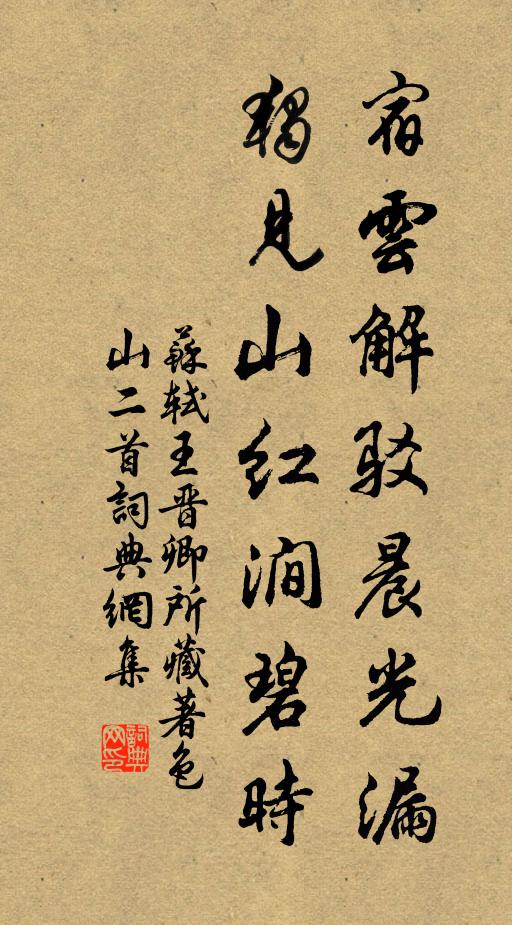 宿雲解駁晨光漏
獨見山紅澗碧時
蘇軾王晋卿所藏著色
山二首詞典網集
詞典
网印